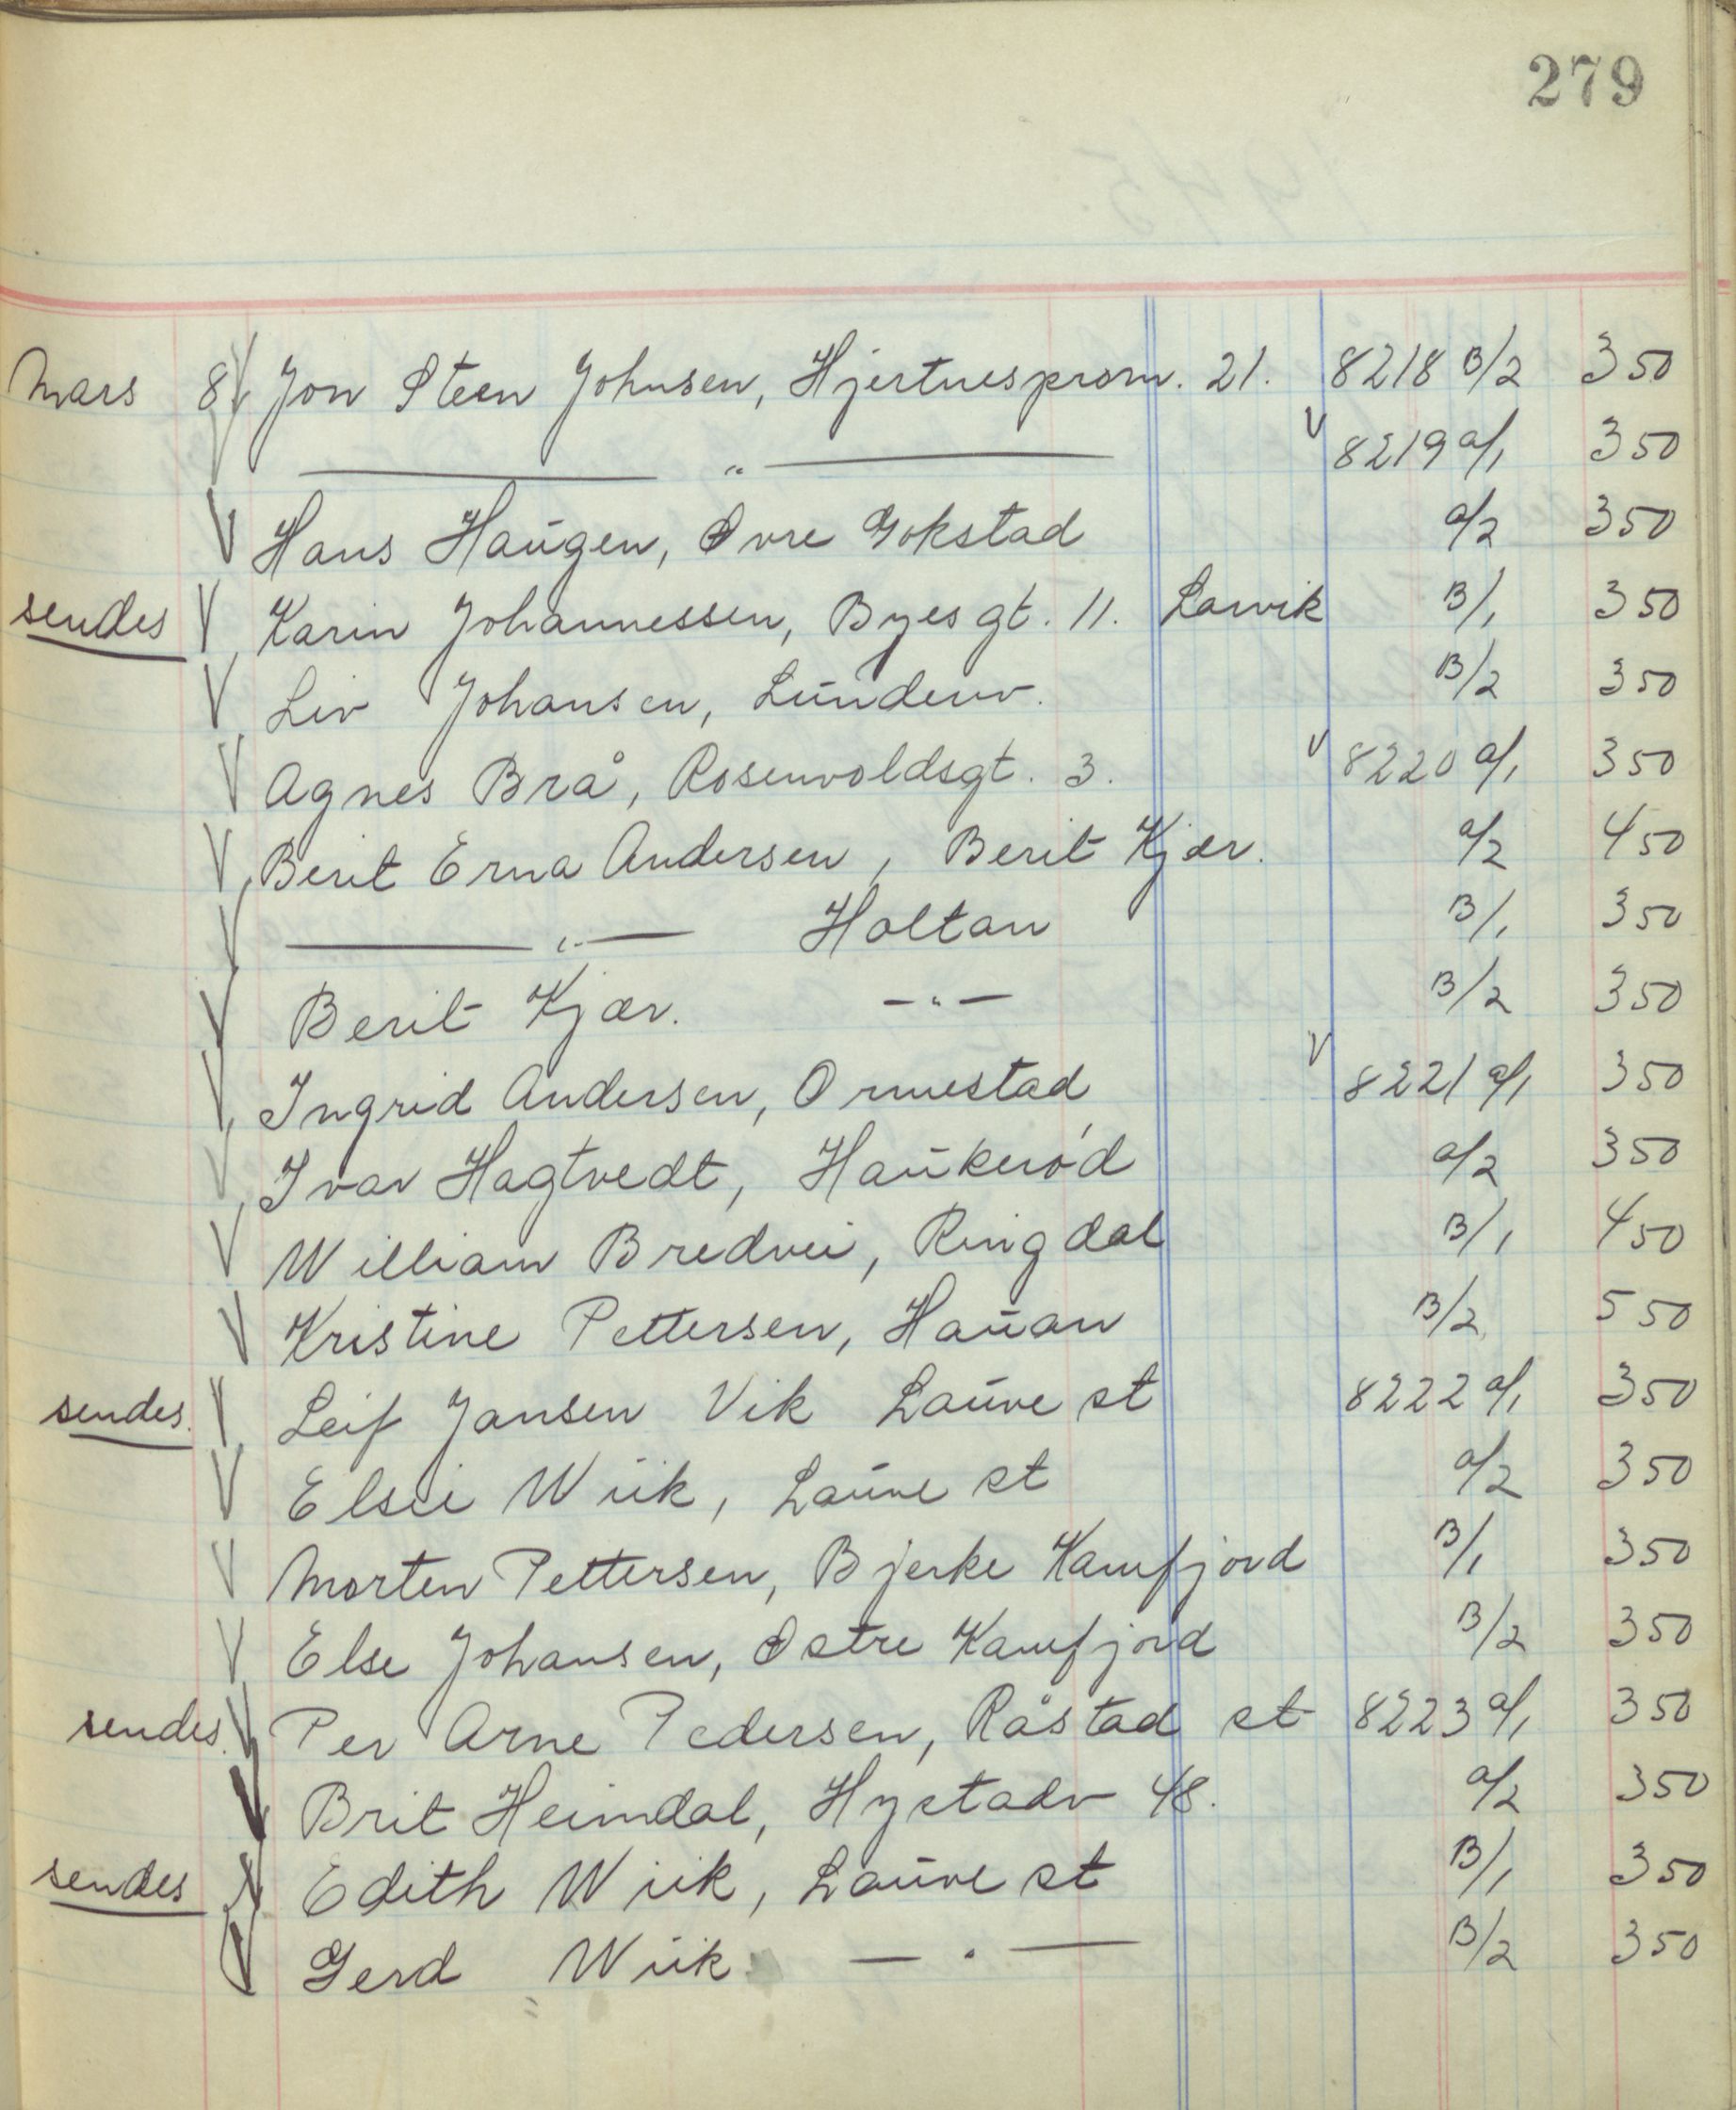 279
Mars 8 Jon Steen Johnsen, Hjertnesprom. 21. 8218 B/2 350
" 8219 a/1 350
Hans Haugen, Øvre Gokstad a/2 350
sendes Karin Johannessen, Byesgt. 11. Larvik B/1 350
Liv Johansen, Lundenv. B/2 350
Agnes Brå, Rosenvoldsgt. 3. 8220 a/1 350
Berit Erna Andersen, Berit Kjær. a/2 450
" Holtan B/1 350
Berit Kjær. " B/2 350
Ingrid Andersen, Ormestad 8221 a/1 350
Ivar Hagtvedt, Haukerød a/2 350
William Bredvei, Ringdal B/1 450
Kristine Pettersen, Hauan B/2 550
sendes. Leif Jansen Vik Lauve st 8222 a/1 350
Elsie Wiik, Lauve st a/2 350
Morten Pettersen, Bjerke Kamfjord B/1 350
Else Johansen, Østre Kamfjord B/2 350
sendes. Per Arne Pedersen, Råstad st 8223 a/1 350
Brit Heimdal, Hystadv 48. a/2 350
sendes Edith Wiik, Lauve st B/1 350
Gerd Wiik — " — B/2 350